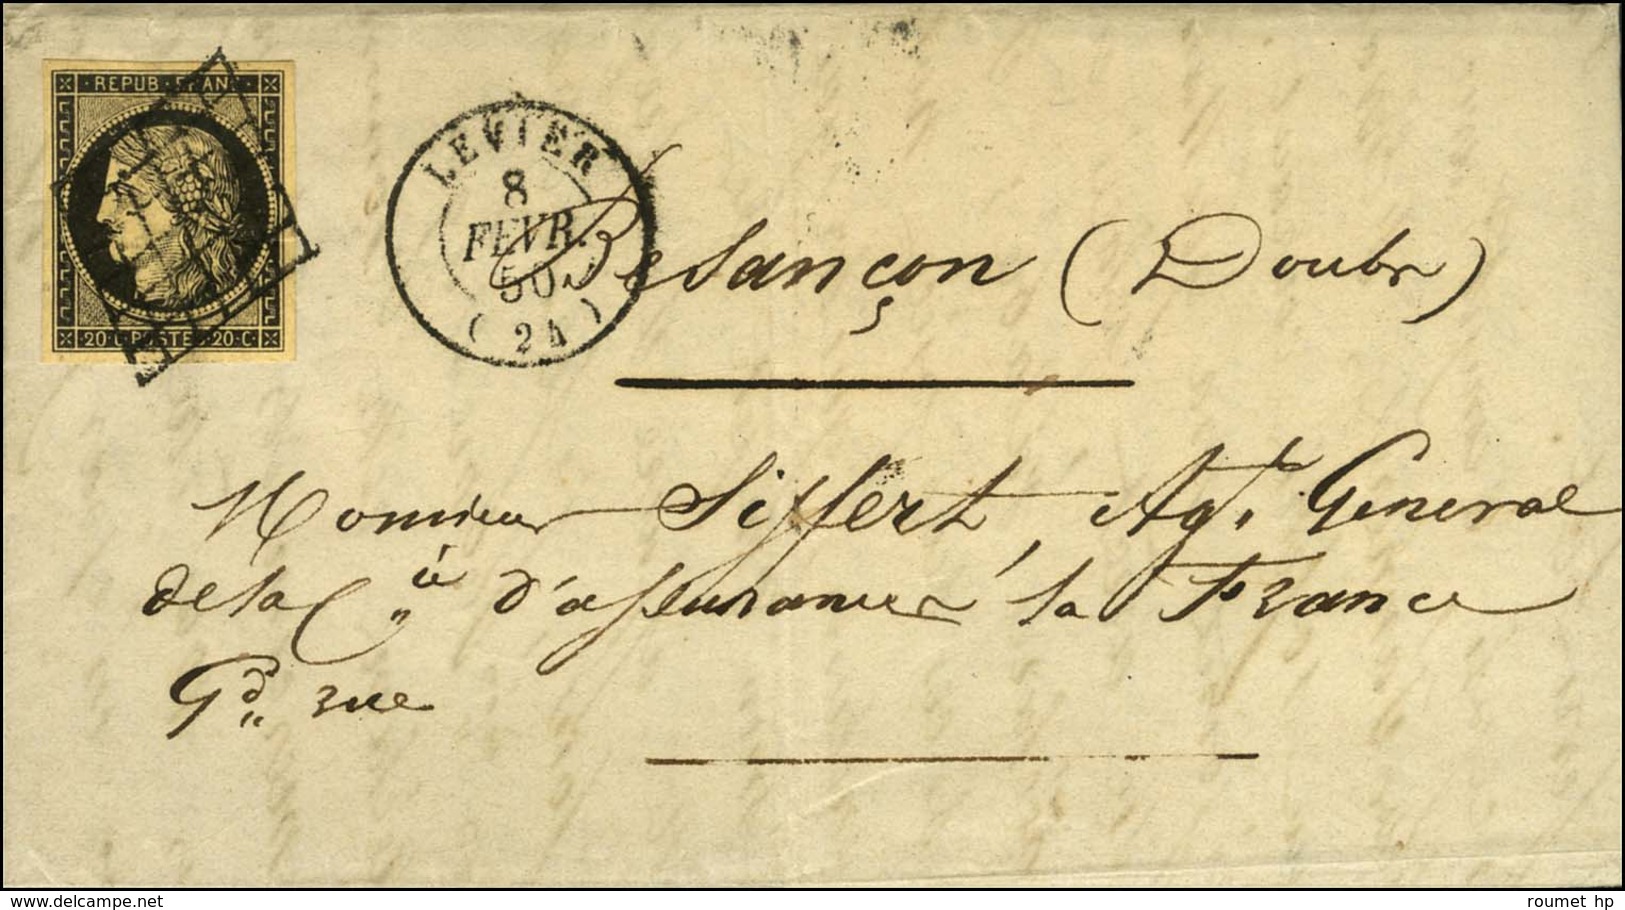 REPUB · FRANC
20 · C · POSTE · 20 · C ·
LEVIER
8
FEVR.
50
( 24 )
Besançon ( Doubs )
Monsieur Siffert, Agt. General
de la Cie d'assurances la France
Gd rue
delcampe.net
roumet hp